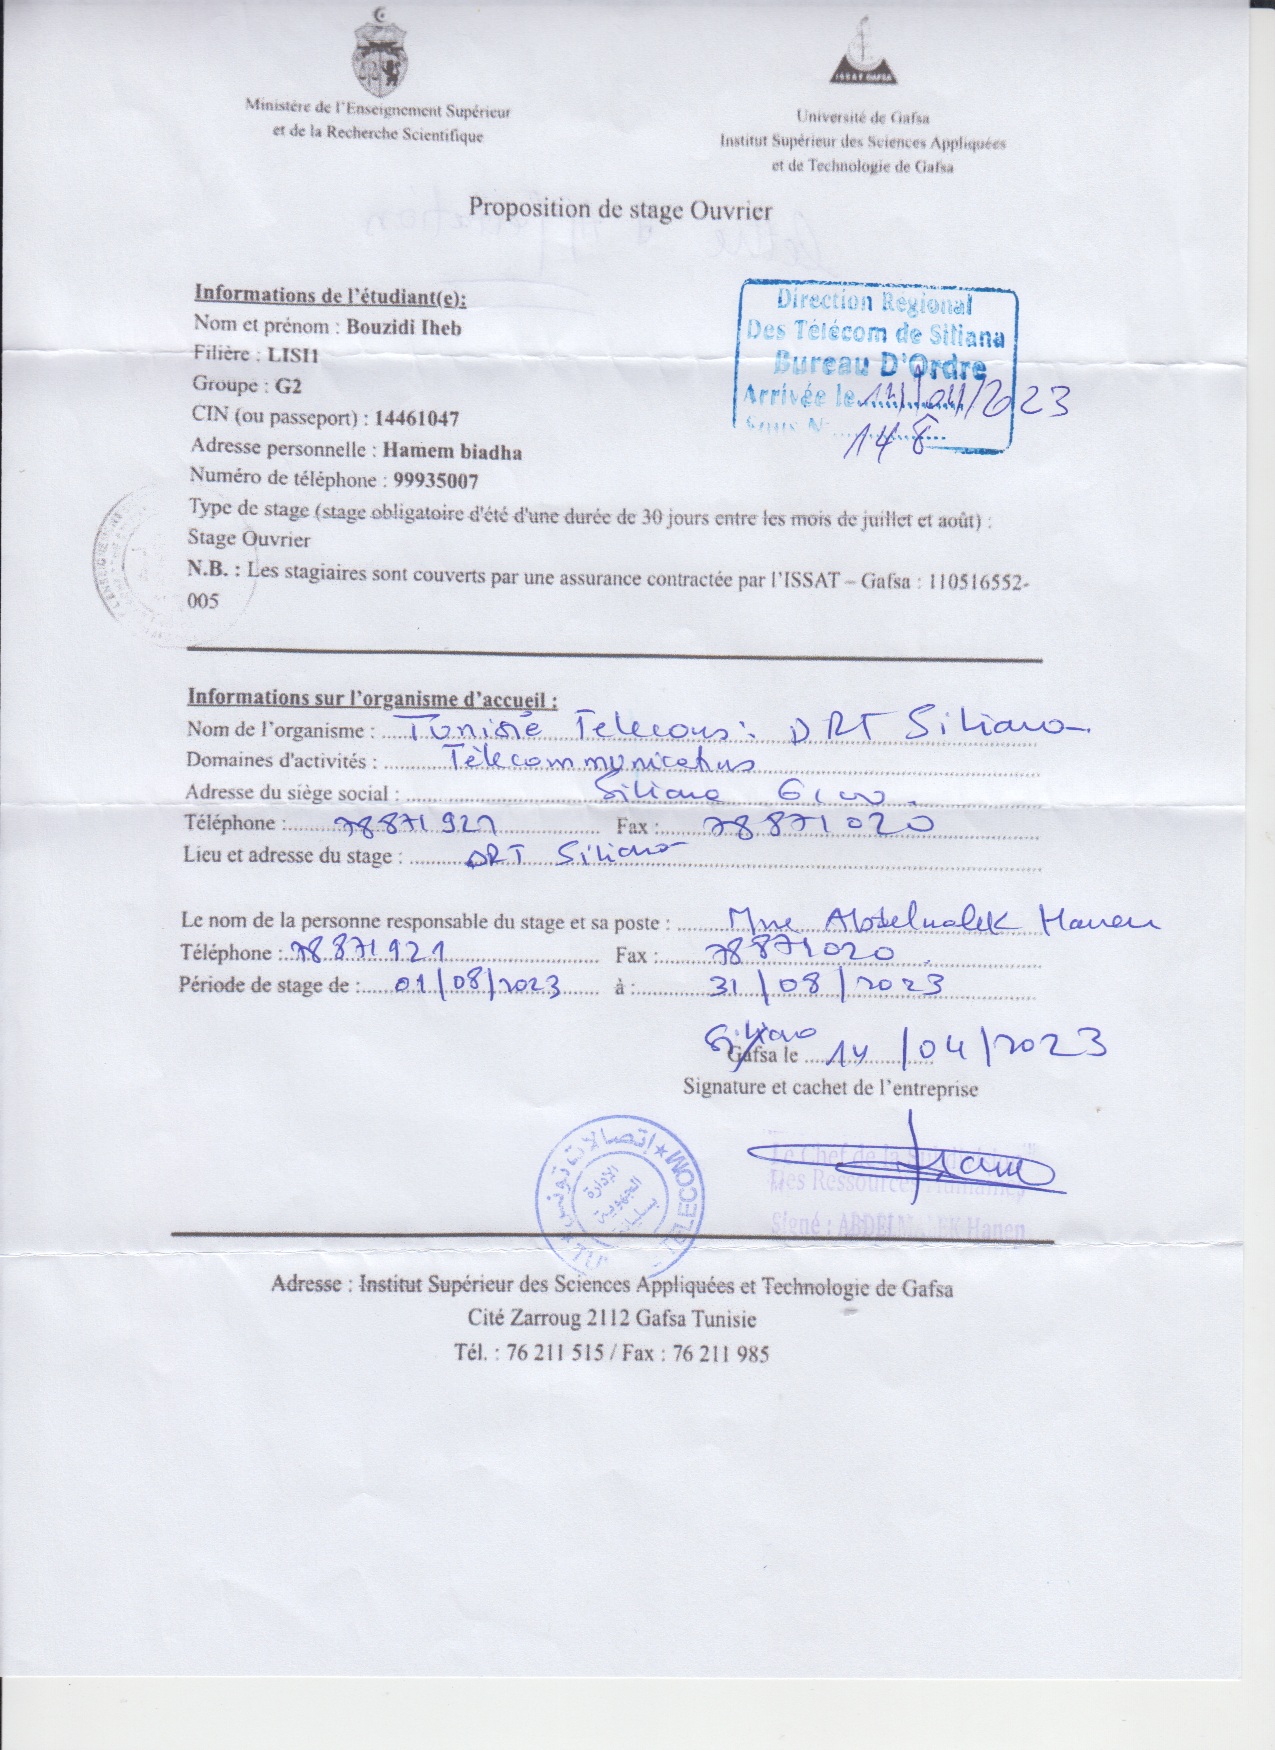 Ministère de l'Enseignement Supérieur
et de la Recherche Scientifique
ISSAT GAFSA
Université de Gafsa
Institut Supérieur des Sciences Appliquées
et de Technologie de Gafsa
Proposition de stage Ouvrier
Direction Régional
Des Télécom de Siliana
Bureau D'Ordre
Arrivée le 14/04/2023
Sous N 148
Informations de l'étudiant(e):
Nom et prénom : Bouzidi Iheb
Filière : LISI1
Groupe : G2
CIN (ou passeport) : 14461047
Adresse personnelle : Hamem biadha
Numéro de téléphone : 99935007
Type de stage (stage obligatoire d'été d'une durée de 30 jours entre les mois de juillet et août) :
Stage Ouvrier
N.B. : Les stagiaires sont couverts par une assurance contractée par l'ISSAT – Gafsa : 110516552-
005
Informations sur l'organisme d'accueil :
Nom de l'organisme : Tunisie Telecom : DRT Siliana
Domaines d'activités : Télécommunications
Adresse du siège social : Siliana 6100.
Téléphone : 78871921 Fax : 78871020
Lieu et adresse du stage : DRT Siliana
Le nom de la personne responsable du stage et sa poste : Mme Abdelmalek Hanen
Téléphone : 78871921 Fax : 78871020.
Période de stage de : 01/08/2023 à : 31/08/2023
Siliana
Gafsa le 14/04/2023
Signature et cachet de l'entreprise
Le Chef de la
Des Ressources Humaines
Signé : Hanen
إتصالات تونس
TELECOM
الإدارة
الجهوية
Adresse : Institut Supérieur des Sciences Appliquées et Technologie de Gafsa
Cité Zarroug 2112 Gafsa Tunisie
Tél. : 76 211 515 / Fax : 76 211 985